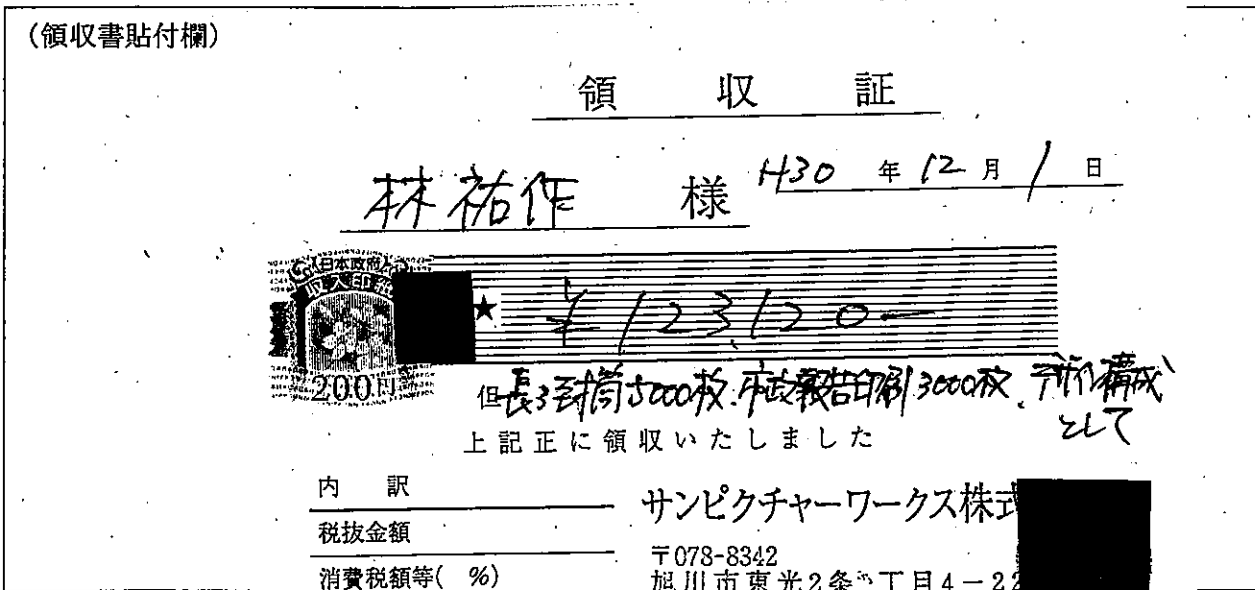 （領収書貼付欄）
領 収 証
林祐作 様
H30 年 12 月 1 日
日本政府
収入印紙
200円
★ ¥123,120-
但 長3封筒5000枚.市政報告印刷3000枚、デザイン構成
として
上記正に領収いたしました
内 訳
税抜金額
消費税額等( %)
サンピクチャーワークス株式
〒078-8342
旭川市東光2条 丁目4-22